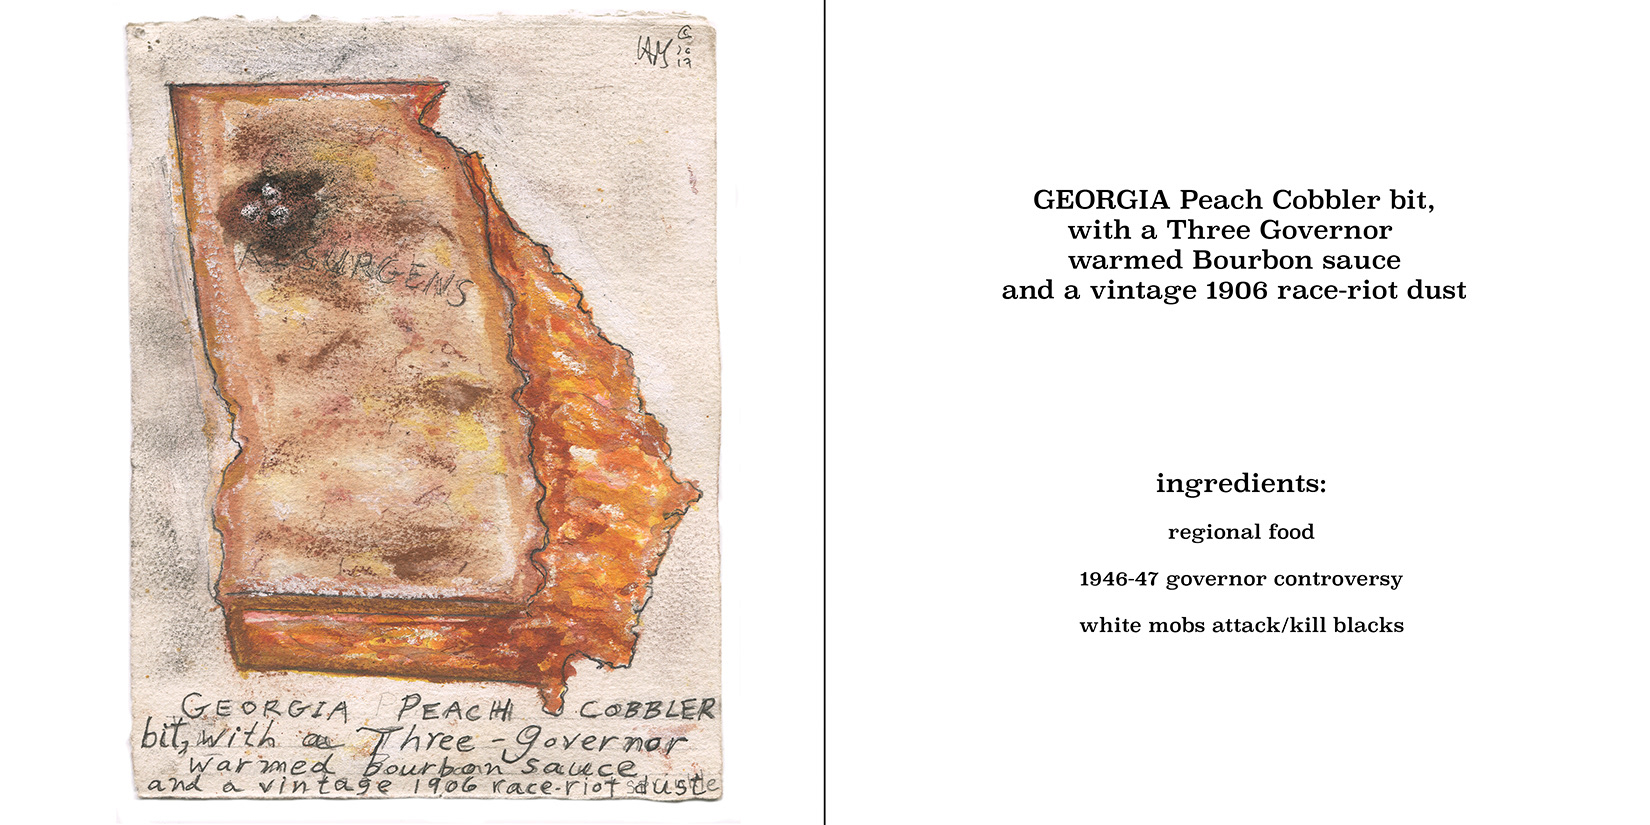 © 20 17
RESURGENS
GEORGIA PEACH COBBLER
bit, with a Three-Governor
warmed Bourbon sauce
and a vintage 1906 race-riot dust
GEORGIA Peach Cobbler bit,
with a Three Governor
warmed Bourbon sauce
and a vintage 1906 race-riot dust
ingredients:
regional food
1946-47 governor controversy
white mobs attack/kill blacks